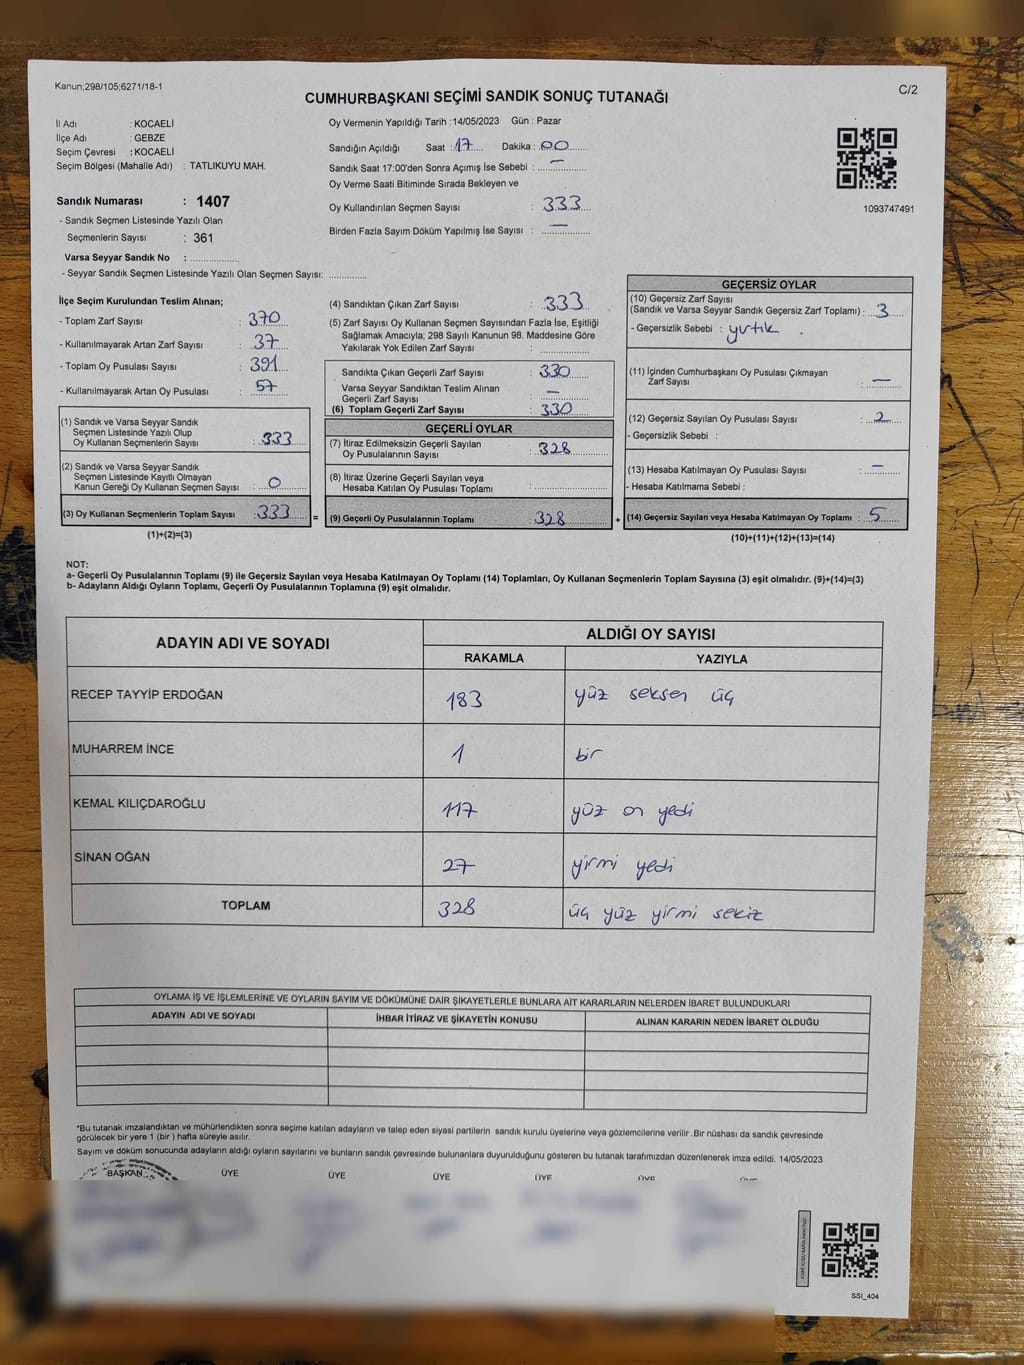 Kanun;298/105;6271/18-1
C/2
CUMHURBAŞKANI SEÇİMİ SANDIK SONUÇ TUTANAĞI
İl Adı : KOCAELİ
İlçe Adı : GEBZE
Seçim Çevresi : KOCAELİ
Seçim Bölgesi (Mahalle Adı) : TATLIKUYU MAH.
Sandık Numarası : 1407
- Sandık Seçmen Listesinde Yazılı Olan
Seçmenlerin Sayısı : 361
Varsa Seyyar Sandık No : ..................
- Seyyar Sandık Seçmen Listesinde Yazılı Olan Seçmen Sayısı: ..............
Oy Vermenin Yapıldığı Tarih :14/05/2023 Gün : Pazar
Sandığın Açıldığı Saat : 17 Dakika : 00
Sandık Saat 17:00'den Sonra Açımış İse Sebebi : —
Oy Verme Saati Bitiminde Sırada Bekleyen ve
Oy Kullandırılan Seçmen Sayısı : 333
Birden Fazla Sayım Döküm Yapılmış İse Sayısı : —
1093747491
İlçe Seçim Kurulundan Teslim Alınan;
- Toplam Zarf Sayısı : 370
- Kullanılmayarak Artan Zarf Sayısı : 37
- Toplam Oy Pusulası Sayısı : 391
- Kullanılmayarak Artan Oy Pusulası : 57
(1) Sandık ve Varsa Seyyar Sandık
Seçmen Listesinde Yazılı Olup
Oy Kullanan Seçmenlerin Sayısı : 333
(2) Sandık ve Varsa Seyyar Sandık
Seçmen Listesinde Kayıtlı Olmayan
Kanun Gereği Oy Kullanan Seçmen Sayısı : 0
(3) Oy Kullanan Seçmenlerin Toplam Sayısı : 333
(1)+(2)=(3)
=
(4) Sandıktan Çıkan Zarf Sayısı : 333
(5) Zarf Sayısı Oy Kullanan Seçmen Sayısından Fazla İse, Eşitliği
Sağlamak Amacıyla; 298 Sayılı Kanunun 98. Maddesine Göre
Yakılarak Yok Edilen Zarf Sayısı : ..............
Sandıkta Çıkan Geçerli Zarf Sayısı : 330
Varsa Seyyar Sandıktan Teslim Alınan
Geçerli Zarf Sayısı : —
(6) Toplam Geçerli Zarf Sayısı : 330
GEÇERLİ OYLAR
(7) İtiraz Edilmeksizin Geçerli Sayılan
Oy Pusulalarının Sayısı : 328
(8) İtiraz Üzerine Geçerli Sayılan veya
Hesaba Katılan Oy Pusulası Toplamı : ..............
(9) Geçerli Oy Pusulalarının Toplamı : 328
+
GEÇERSİZ OYLAR
(10) Geçersiz Zarf Sayısı
(Sandık ve Varsa Seyyar Sandık Geçersiz Zarf Toplamı) : 3
- Geçersizlik Sebebi : yırtık
(11) İçinden Cumhurbaşkanı Oy Pusulası Çıkmayan
Zarf Sayısı : —
(12) Geçersiz Sayılan Oy Pusulası Sayısı : 2
- Geçersizlik Sebebi :
(13) Hesaba Katılmayan Oy Pusulası Sayısı : —
- Hesaba Katılmama Sebebi :
(14) Geçersiz Sayılan veya Hesaba Katılmayan Oy Toplamı : 5
(10)+(11)+(12)+(13)=(14)
NOT:
a- Geçerli Oy Pusulalarının Toplamı (9) ile Geçersiz Sayılan veya Hesaba Katılmayan Oy Toplamı (14) Toplamları, Oy Kullanan Seçmenlerin Toplam Sayısına (3) eşit olmalıdır. (9)+(14)=(3)
b- Adayların Aldığı Oyların Toplamı, Geçerli Oy Pusulalarının Toplamına (9) eşit olmalıdır.
ADAYIN ADI VE SOYADI ALDIĞI OY SAYISI
RAKAMLA YAZIYLA
RECEP TAYYİP ERDOĞAN 183 yüz seksen üç
MUHARREM İNCE 1 bir
KEMAL KILIÇDAROĞLU 117 yüz on yedi
SİNAN OĞAN 27 yirmi yedi
TOPLAM 328 üç yüz yirmi sekiz
OYLAMA İŞ VE İŞLEMLERİNE VE OYLARIN SAYIM VE DÖKÜMÜNE DAİR ŞİKAYETLERLE BUNLARA AİT KARARLARIN NELERDEN İBARET BULUNDUKLARI
ADAYIN ADI VE SOYADI İHBAR İTİRAZ VE ŞİKAYETİN KONUSU ALINAN KARARIN NEDEN İBARET OLDUĞU
*Bu tutanak imzalandıktan ve mühürlendikten sonra seçime katılan adayların ve talep eden siyasi partilerin sandık kurulu üyelerine veya gözlemcilerine verilir .Bir nüshası da sandık çevresinde
görülecek bir yere 1 (bir ) hafta süreyle asılır.
Sayım ve döküm sonucunda adayların aldığı oyların sayılarını ve bunların sandık çevresinde bulunanlara duyurulduğunu gösteren bu tutanak tarafımızdan düzenlenerek imza edildi. 14/05/2023
BAŞKAN ÜYE ÜYE ÜYE ÜYE ÜYE
SSI_404